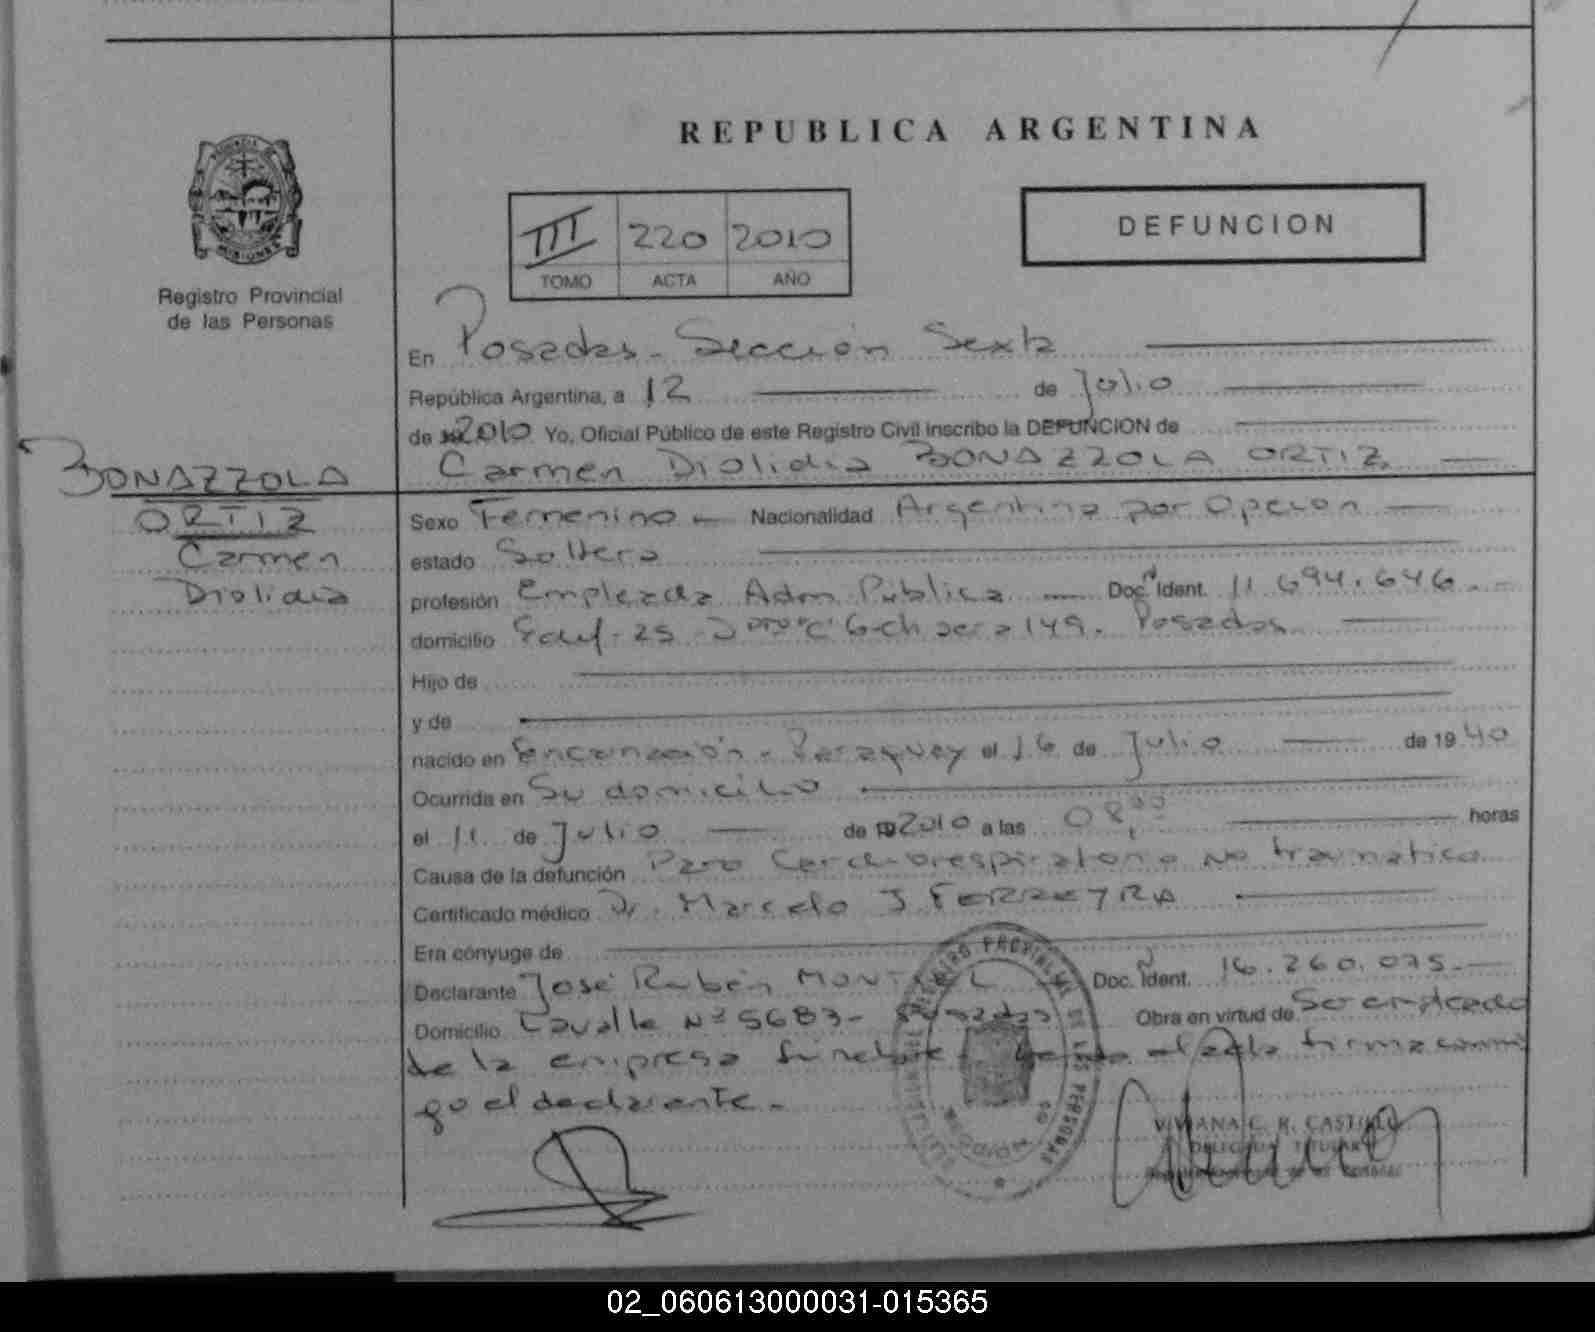 REPUBLICA ARGENTINA
III 220 2010
TOMO ACTA AÑO
DEFUNCION
Registro Provincial
de las Personas
En Posadas - Sección Sexta
República Argentina, a 12 de Julio
de 2010 Yo, Oficial Público de este Registro Civil inscribo la DEFUNCION de
Carmen Diolidia BONAZZOLA ORTIZ
BONAZZOLA
ORTIZ
Carmen
Diolidia
Sexo Femenino Nacionalidad Argentina por Opcion
estado Soltera
profesión Empleada Adm Pública Doc. Ident. 11.694.646.
domicilio Edif. 25 149. Posadas
Hijo de
y de
nacido en Encarnación - Paraguay el 16 de Julio de 1940
Ocurrida en Su domicilio
el 11 de Julio de 2010 a las 08,00 horas
Causa de la defunción Paro Cardiorespiratorio no traumatico
Certificado médico Dr. Marcelo J FERREYRA
Era cónyuge de
Declarante José Rubén Doc. Ident. 16.260.075.
Domicilio Lavalle Nº 5683 - Posadas Obra en virtud de Ser empleado
de la empresa funebre el acta firma conmi
go el declarante.
REGISTRO PROVINCIAL DE LAS PERSONAS
VIVIANA C. R. CASTILLO
TITULAR
02_060613000031-015365